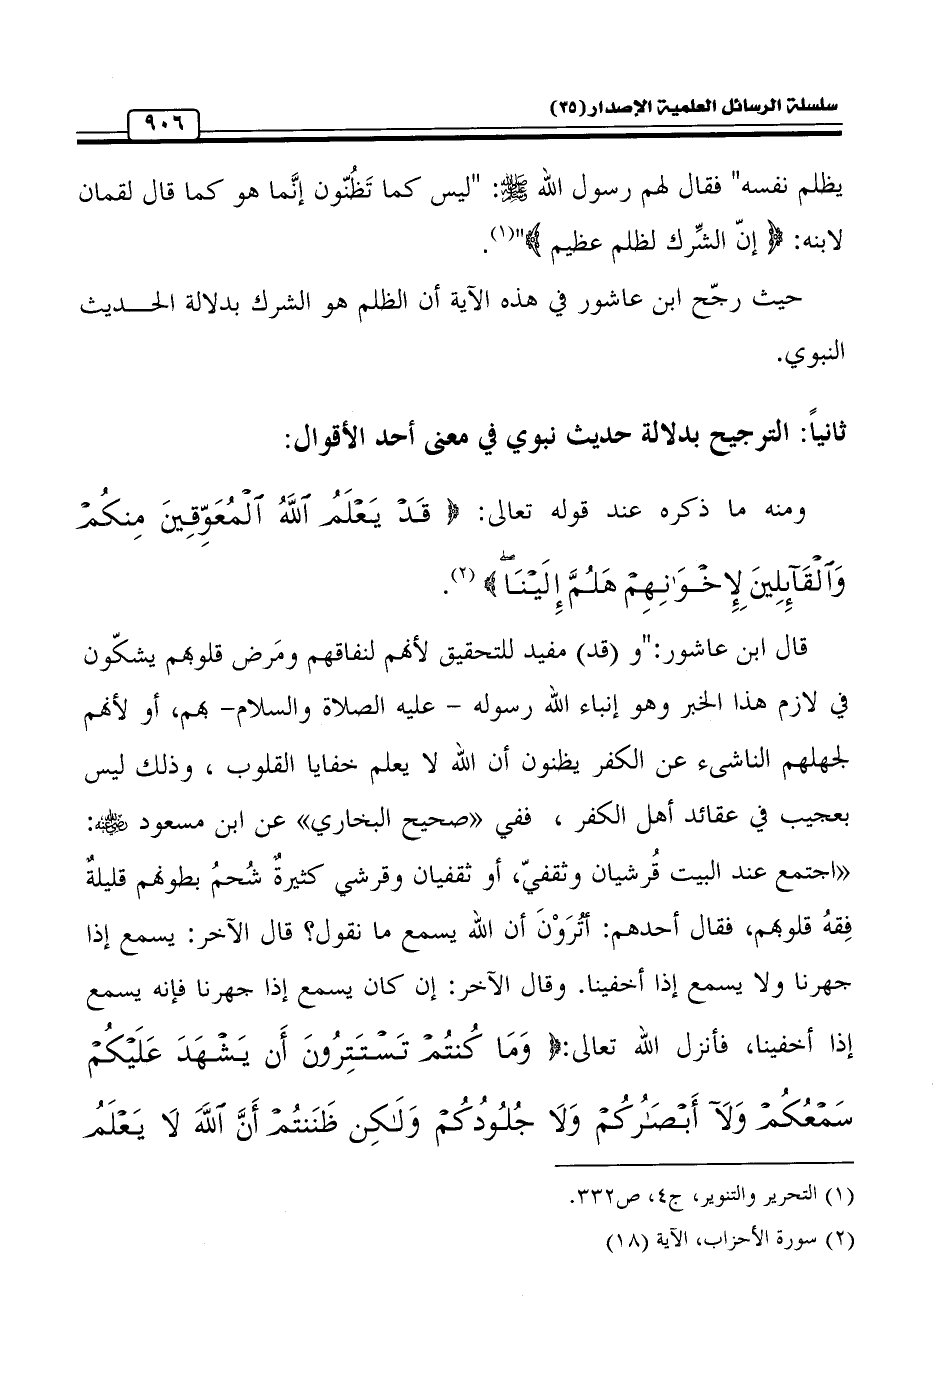 سلسلة الرسائل العلمية الإصدار (٢٥)
٩٠٦
يظلم نفسه" فقال لهم رسول الله ﷺ: "ليس كما تَظُنّون إنَّما هو كما قال لقمان
لابنه: ﴿ إنّ الشِّرك لظلم عظيم ﴾"(١).
حيث رجّح ابن عاشور في هذه الآية أن الظلم هو الشرك بدلالة الحـــديث
النبوي.
ثانياً: الترجيح بدلالة حديث نبوي في معنى أحد الأقوال:
ومنه ما ذكره عند قوله تعالى: ﴿ قَدْ يَعْلَمُ ٱللَّهُ ٱلْمُعَوِّقِينَ مِنكُمْ
وَٱلْقَآئِلِينَ لِإِخْوَٰنِهِمْ هَلُمَّ إِلَيْنَا ۖ ﴾(٢).
قال ابن عاشور:"و (قد) مفيد للتحقيق لأنهم لنفاقهم ومَرض قلوبهم يشكّون
في لازم هذا الخبر وهو إنباء الله رسوله – عليه الصلاة والسلام– بهم، أو لأنهم
لجهلهم الناشىء عن الكفر يظنون أن الله لا يعلم خفايا القلوب ، وذلك ليس
بعجيب في عقائد أهل الكفر ، ففي «صحيح البخاري» عن ابن مسعود رضي الله عنه:
«اجتمع عند البيت قُرشيان وثقفيّ، أو ثقفيان وقرشي كثيرةٌ شُحمُ بطونهم قليلةٌ
فِقهُ قلوبهم، فقال أحدهم: أتُرَوْنَ أن الله يسمع ما نقول؟ قال الآخر: يسمع إذا
جهرنا ولا يسمع إذا أخفينا. وقال الآخر: إن كان يسمع إذا جهرنا فإنه يسمع
إذا أخفينا، فأنزل الله تعالى:﴿ وَمَا كُنتُمْ تَسْتَتِرُونَ أَن يَشْهَدَ عَلَيْكُمْ
سَمْعُكُمْ وَلَآ أَبْصَٰرُكُمْ وَلَا جُلُودُكُمْ وَلَٰكِن ظَنَنتُمْ أَنَّ ٱللَّهَ لَا يَعْلَمُ
(١) التحرير والتنوير، ج٤، ص٣٣٢.
(٢) سورة الأحزاب، الآية (١٨)